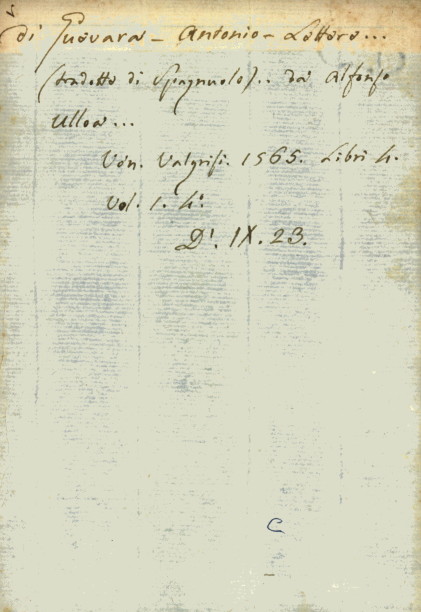 di Guevara - Antonio - Lettere...
(tradotte di Spagnuolo).. da Alfonso
Ulloa...
Ven. Valgrisi. 1565. Libri 4.
Vol. 1. 4.º
D'. IX. 23.
C